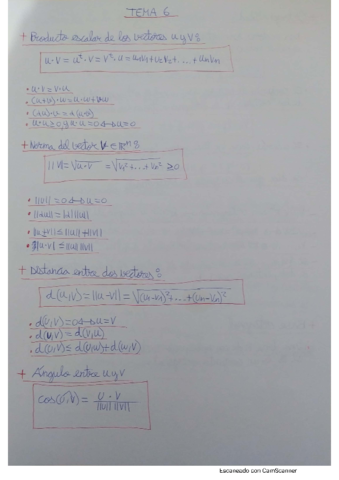 TEMA 6
+ Producto escalar de los vectores u y v:
u·v = uᵗ·v = vᵗ·u = u₁v₁+u₂v₂+...+uₙvₙ
• u·v = v·u
• (u+v)·w = u·w+v·w
• (αu)·v = α(u·v)
• u·u ≥ 0 y u·u = 0 ⇔ u = 0
+ Norma del vector v ∈ ℝⁿ:
||v|| = √u·v = √v₁²+...+vₙ² ≥ 0
• ||u|| = 0 ⇔ u = 0
• ||αu|| = |α| ||u||
• ||u+v|| ≤ ||u||+||v||
• |u·v| = ||u|| ||v||
+ Distancia entre dos vectores:
d(u,v) = ||u-v|| = √(u₁-v₁)²+...+(uₙ-vₙ)²
• d(u,v) = 0 ⇔ u = v
• d(u,v) = d(v,u)
• d(u,v) ≤ d(u,w)+d(w,v)
+ Ángulo entre u y v
cos(u,v) = u·v / ||u|| ||v||
Escaneado con CamScanner